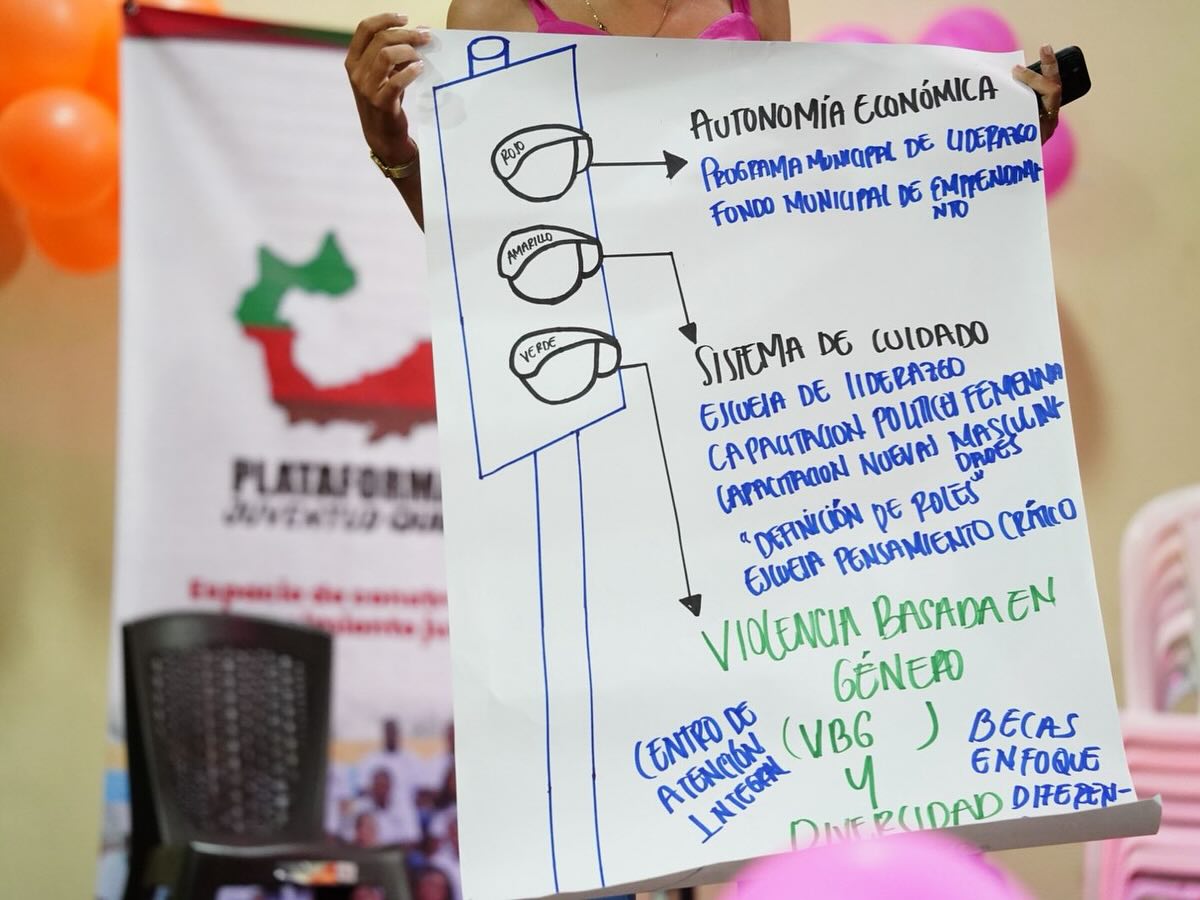 ROJO
AMARILLO
VERDE
AUTONOMÍA ECONÓMICA
PROGRAMA MUNICIPAL DE LIDERAZGO
FONDO MUNICIPAL DE EMPRENDIMIE
NTO
SISTEMA DE CUIDADO
ESCUELA DE LIDERAZGO
CAPACITACION POLITICA FEMENINA
CAPACITACION NUEVAS MASCULINI-
DADES
"DEFINICIÓN DE ROLES"
ESCUELA PENSAMIENTO CRÍTICO
VIOLENCIA BASADA EN
GÉNERO
(VBG )
Y
DIVERSIDAD
CENTRO DE
ATENCIÓN
INTEGRAL
BECAS
ENFOQUE
DIFEREN-
PLATAFORM
JUVENTUD
Espacio de